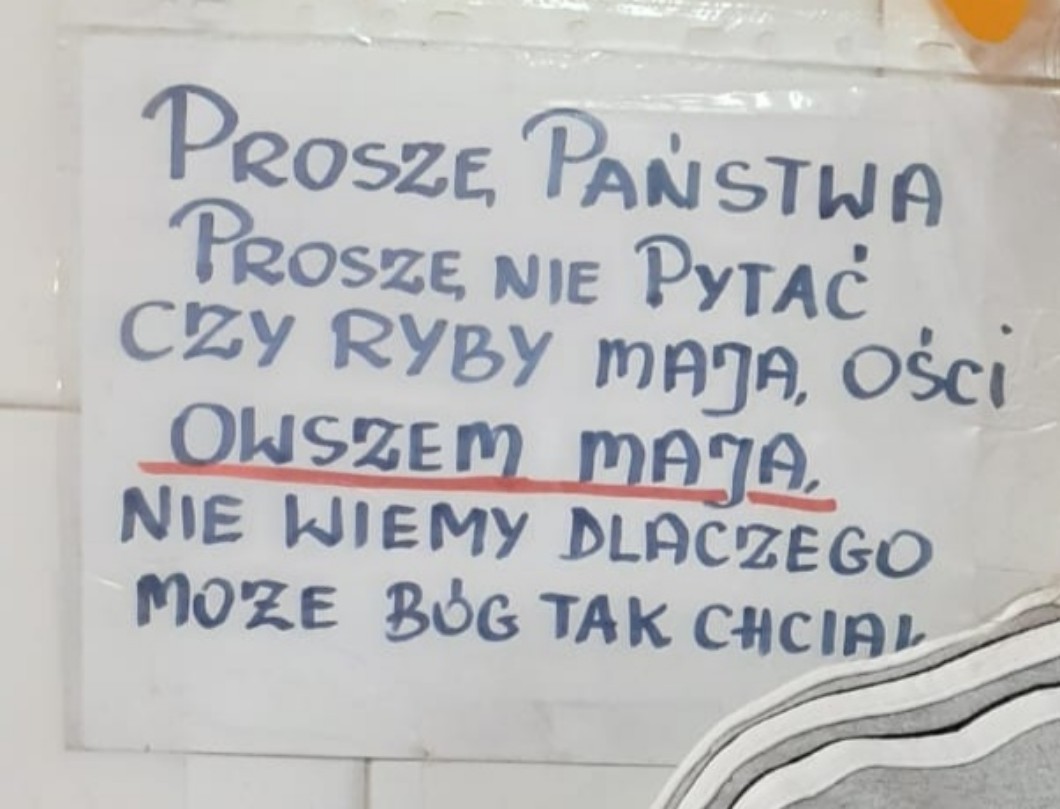 PROSZĘ PAŃSTWA
PROSZĘ NIE PYTAĆ
CZY RYBY MAJĄ OŚCI
OWSZEM MAJĄ
NIE WIEMY DLACZEGO
MOŻE BÓG TAK CHCIAŁ